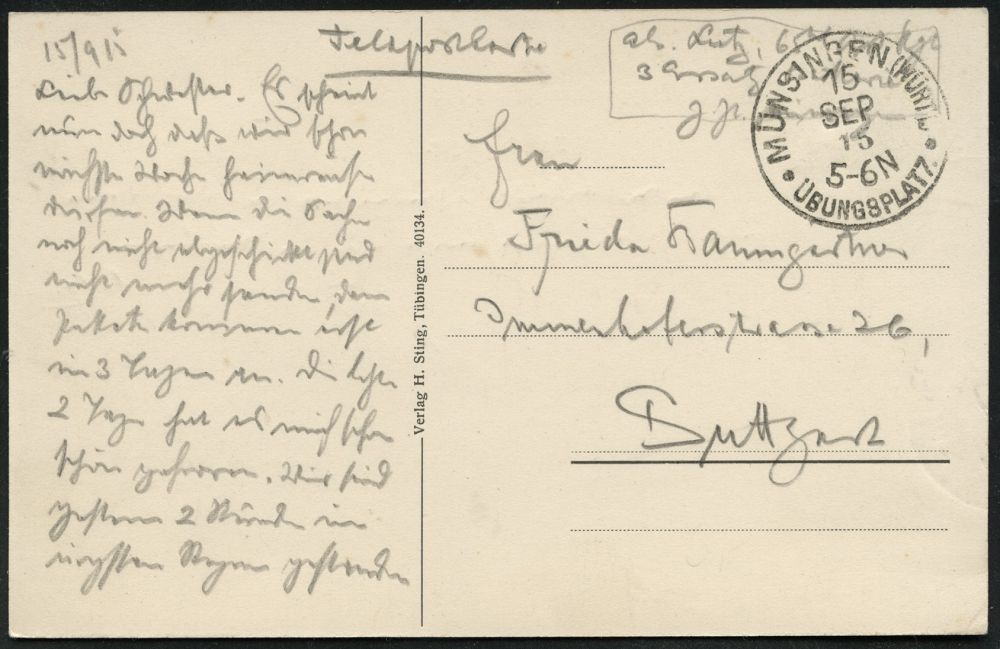 15/9 15
Liebe Schwester. Es scheint
nun doch daß wir schon
nächste Woche heimreisen
dürfen. Wenn die Sachen
noch nicht abgeschickt sind
nicht mehr senden, denn
Pakete kommen erst
in 3 Tagen an. Die letzten
2 Tage hat es mich schon
schön gefroren. Wir sind
gestern 2 Stunden im
ärgsten Regen gestanden
Feldpostkarte
abs. Lutz,
3 Ersatz
MÜNSINGEN (WÜRTT.)
15
SEP
15
5-6N
ÜBUNGSPLATZ.
Frau
Frieda Baumgartner
Immenhoferstrasse 26,
Stuttgart
Verlag H. Sting, Tübingen. 40134.